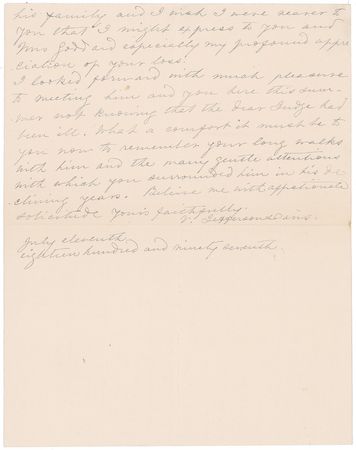 his family and I wish I were nearer to
you that I might express to you and
Mrs Goddard especially my profound appre
ciation of your loss.
I looked forward with much pleasure
to meeting him and you here this sum-
mer not knowing that the dear Judge had
been ill. What a comfort it must be to
you now to remember your long walks
with him and the many gentle attentions
with which you surrounded him in his de
clining years. Believe me with affectionate
solicitude Yours faithfully
V. Jefferson Davis.
July eleventh
eighteen hundred and ninety seventh.